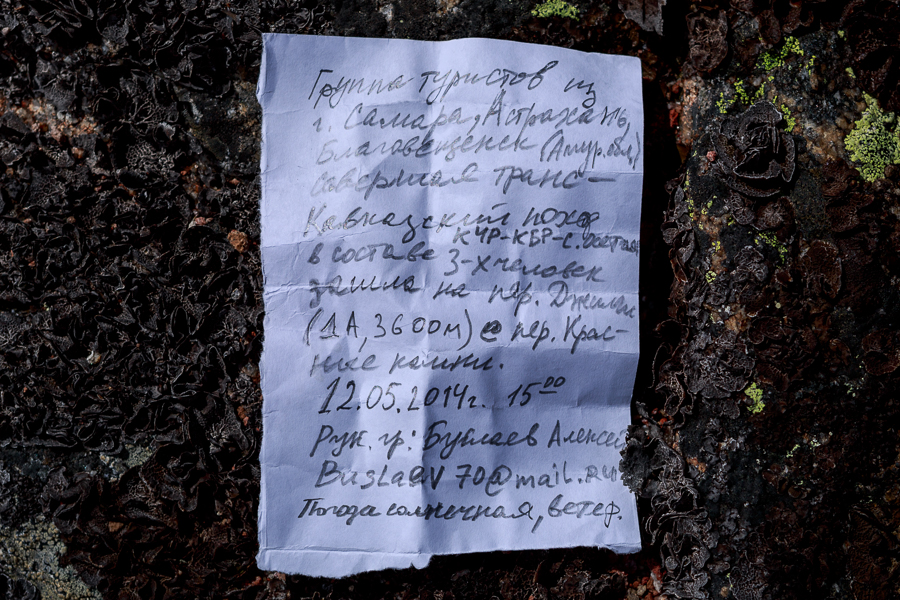 Группа туристов из
г. Самара, Астрахань,
Благовещенск (Амур.обл)
совершая транс-
Кавказский поход
КЧР-КБР-С.Осетия
в составе 3-х человек
зашла на пер. Джилы
(1А, 3600м) с пер. Крас-
ные камни.
12.05.2014г. 15⁰⁰
Рук. гр: Буслаев Алексей
Buslaev70@mail.ru
Погода солнечная, ветер.